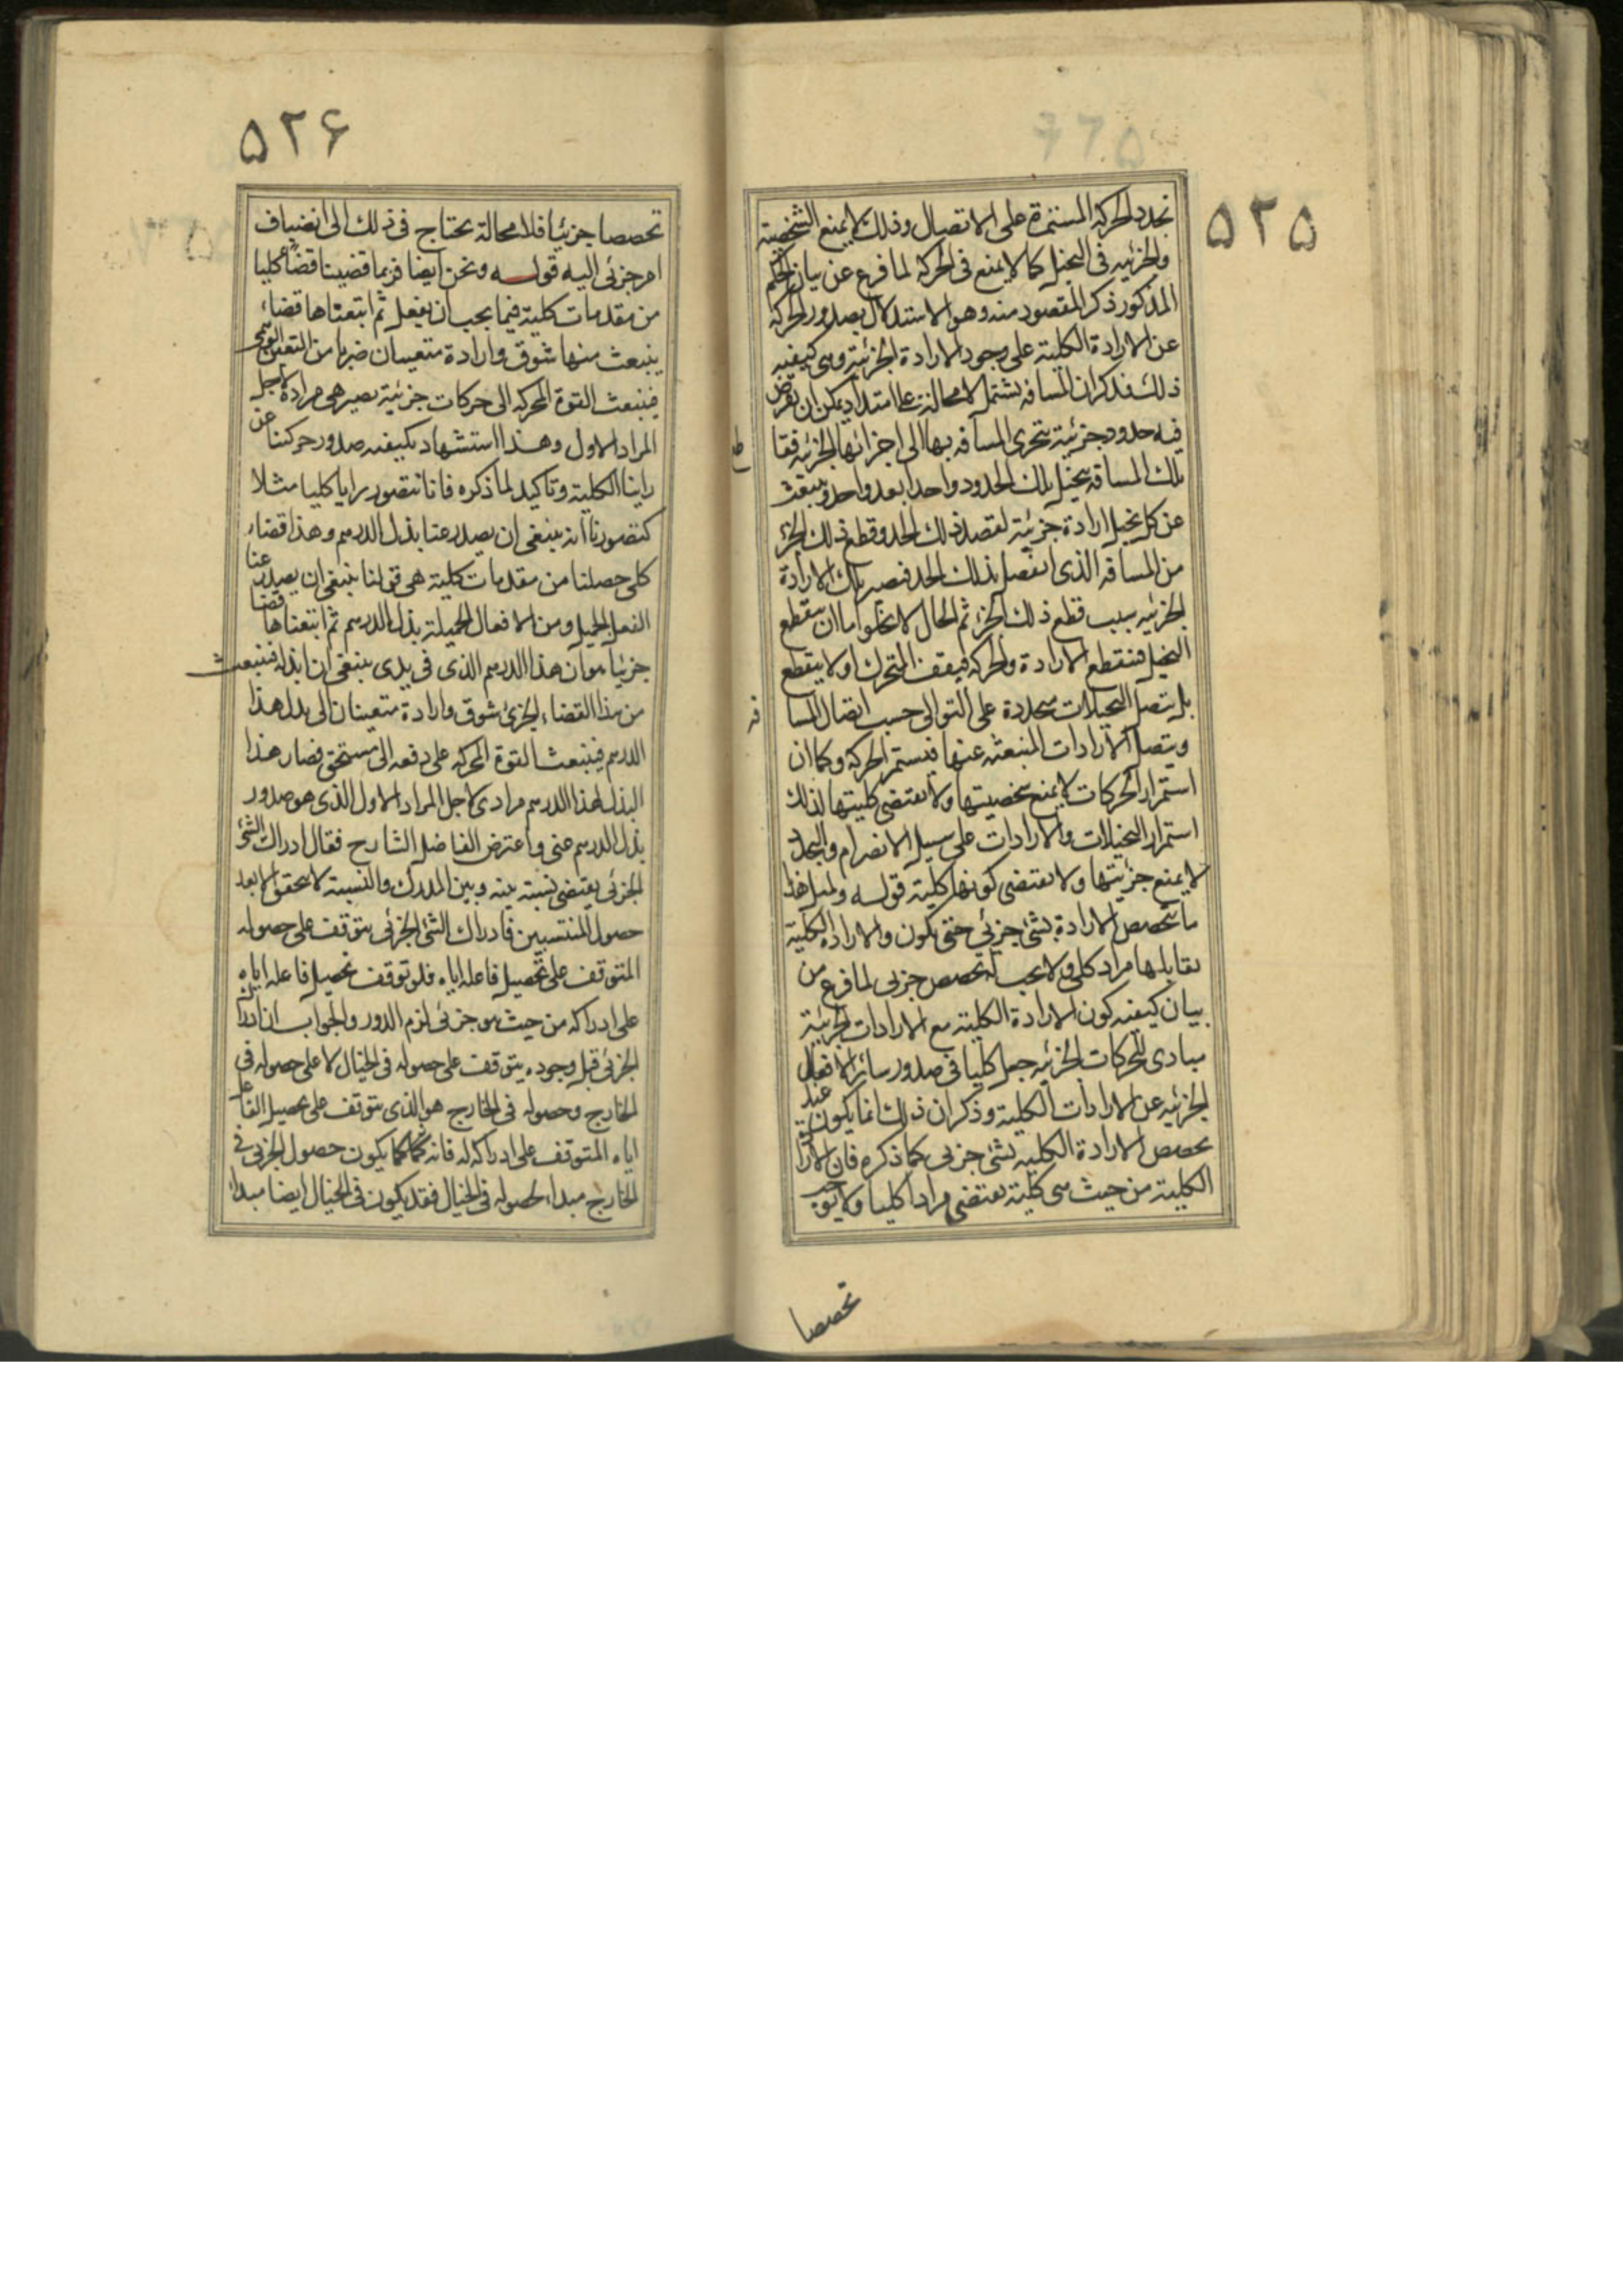 ۵۲۵
تجدد الحركة المستمرة على الاتصال وذلك لا يمنع الشخصية
والجزئيه فى التخيل كما لا يمنع فى الحركة لما فرغ عن بيان الحكم
المذكور ذكر المقصود منه وهو الاستدلال بصدور الحركة
عن الارادة الكلية على وجود الارادة الجزئية وهى كيفيه
ذلك فذكر ان المسافه تشتمل لا محالة على امتداد يمكن ان يفرض
فيه حدود جزئية تتجزى المسافه بها الى اجزائها الجزئيه فقا طع
تلك المسافه يتخيل تلك الحدود واحدا بعد واحد وينبعث
عن كل تخيل ارادة جزئية لقصد ذلك الحد وقطع ذلك الجزء
من المسافه الذى انفصل بذلك الحد فتصير تلك الارادة
الجزئيه سبب قطع ذلك الجزء ثم الحال لا يخلوا ما ان ينقطع
التخيل فتنقطع الارادة والحركه فيقف المتحرك او لا ينقطع
بل يتصل التخيلات متجددة على التوالى حسب اتصال المسا فه
ويتصل الارادات المنبعثه عنها فتستمر الحركه وكما ان
استمرار الحركات لا يمنع شخصيتها ولا يقتضى كليتها لذلك
استمرار التخيلات والارادات على سبيل الانصرام والتجدد
لا يمنع جزئيتها ولا يقتضى كونها كلية قوله ولمثل هذا
ما تتخصص الارادة بشئ جزئى حتى يكون والارادة الكلية
يقابلها مراد كلى ولا يجب له تخصص جزئى لما فرغ من
بيان كيفيه كون الارادة الكلية مع الارادات الجزئية
مبادى للحركات الجزئيه جعل كليا فى صدور سائر الافعال
الجزئيه عن الارادات الكلية وذكر ان ذلك انما يكون عند
تخصص الارادة الكليه بشئ جزئى كما ذكره فان الارادة
الكلية من حيث هى كلية يقتضى مرادا كليا ولا يوجد
تخصصا
۵۲۶
تخصصا جزئيا فلا محالة يحتاج فى ذلك الى انضياف
امر جزئى اليه قوله ونحن ايضا فربما قضينا قضاء كليا
من مقدمات كلية فيما يجب ان يفعل ثم اتبعناها قضاء
ينبعث منها شوق وارادة متعينان ضربا من التعين الوهمى
فينبعث القوة المحركه الى حركات جزئية يصير هى مرادة لاجل
المراد الاول وهذا استشهاد بكيفيه صدور حركتنا عن
راينا الكلية وتاكيد لما ذكره فانا نتصور رايا كليا مثلا
كتصورنا انه ينبغى ان يصدر عنا بذل الدرهم وهذا قضاء
كلى حصلنا من مقدمات كلية هى قولنا ينبغى ان يصدر عنا
الفعل الجميل ومن الافعال الجميلة بذل الدرهم ثم اتبعناها قضا
جزئيا هو ان هذا الدرهم الذى فى يدى ينبغى ان ابذله فينبعث
من هذا القضاء الجزئى شوق وارادة متعينان الى بذل هذا
الدرهم فينبعث القوة المحركه على دفعه الى مستحق فصار هذا
البذل لهذا الدرهم مرادى لاجل المراد الاول الذى هو صدور
بذل الدرهم عنى واعترض الفاضل الشارح فقال ادراك الشئ
الجزئى يقتضى نسبة بينه وبين المدرك والنسبة لا تتحقق الا بعد
حصول المنتسبين فادراك الشئ الجزئى يتوقف على حصوله
المتوقف على تحصيل فاعله اياه فلو توقف تحصيل فاعله اياه
على ادراكه من حيث هو جزئى لزم الدور والجواب ان ادراك
الجزئى قبل وجوده يتوقف على حصوله فى الخيال لا على حصوله فى
الخارج وحصوله فى الخارج هو الذى يتوقف على تحصيل الفاعل
اياه المتوقف على ادراكه له فانه كما يكون حصول الجزئى فى
الخارج مبداء لحصوله فى الخيال فقد يكون فى الخيال ايضا مبداء